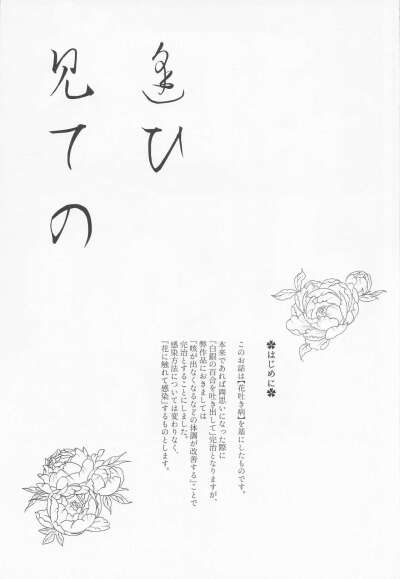 逢ひ
見ての
✽はじめに✽
このお話は【花吐き病】を基にしたものです。
本来であれば両思いになった際に
「白銀の百合を吐き出して」完治となりますが、
弊作品におきましては
「咳が出なくなるなどの体調が改善する」ことで
完治とすることにしました。
感染方法については変わりなく、
「花に触れて感染」するものとします。